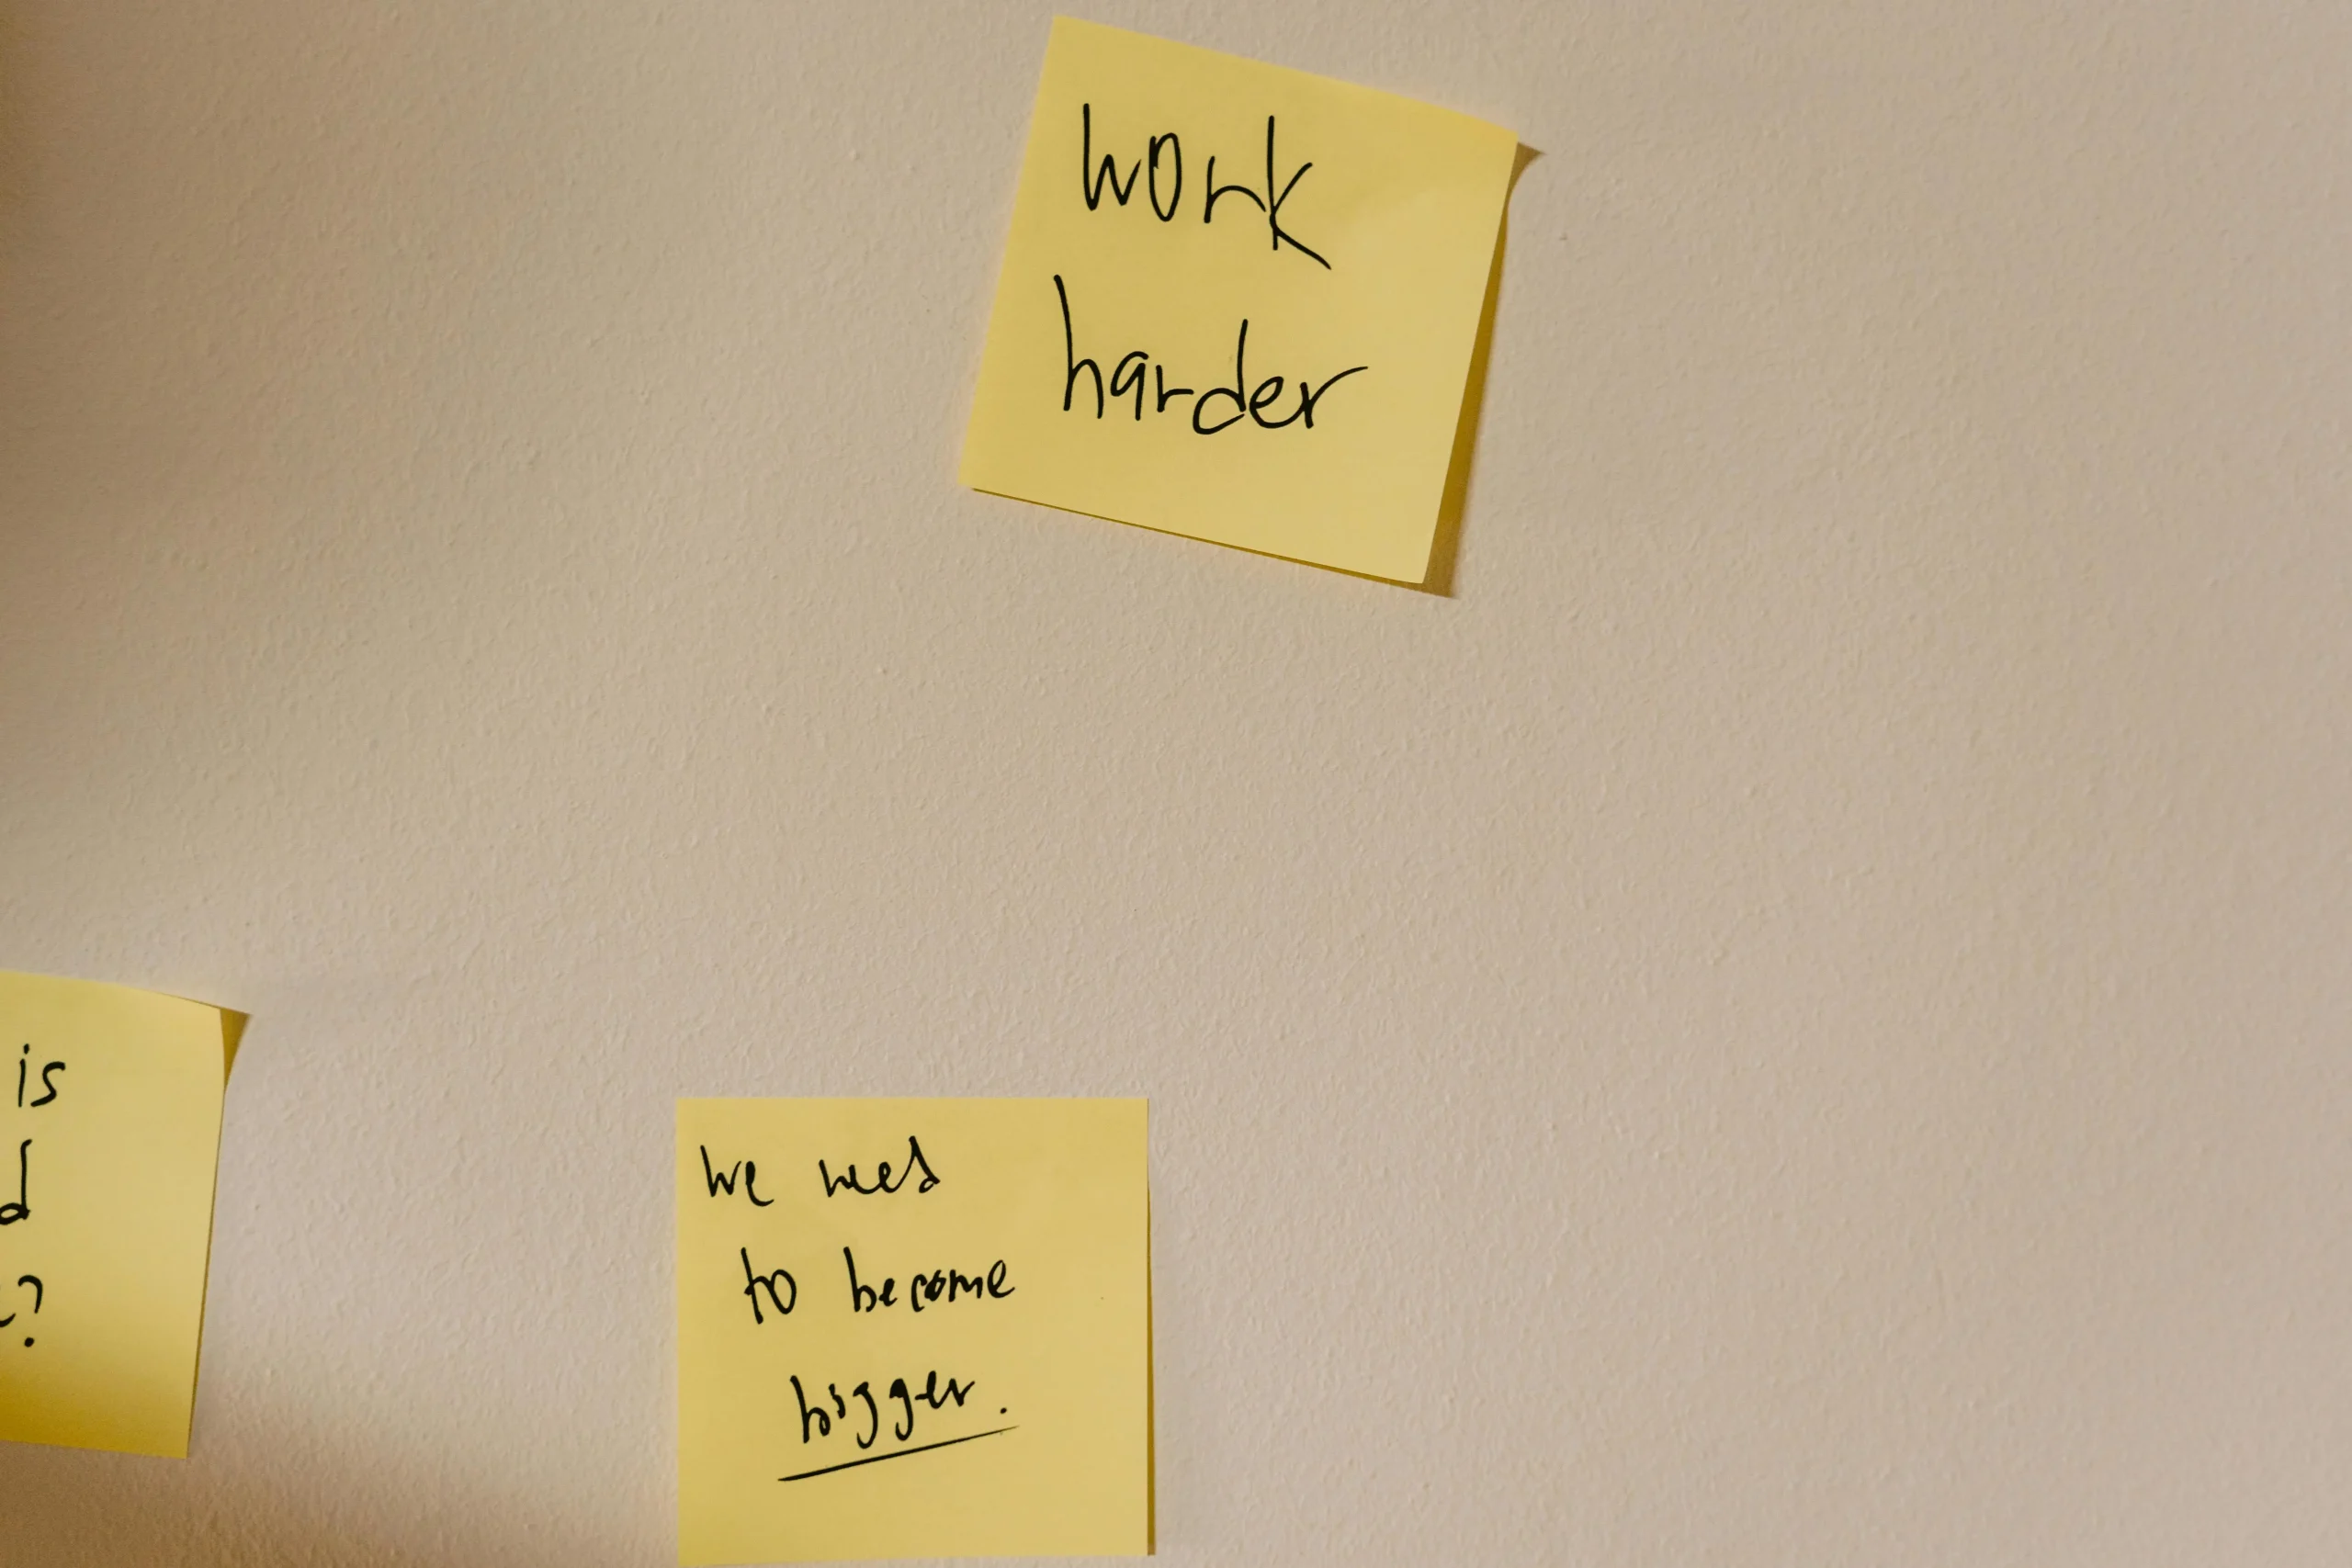 work
harder
is
we need
to become
bigger.